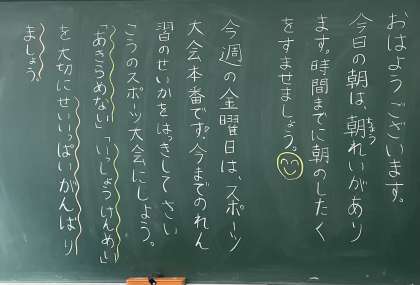 おはようございます。
今日の朝は、朝れいがあり
ちょう
ます。時間までに朝のしたく
をすませましょう。
今週の金曜日は、スポーツ
大会本番です。今までのれん
習のせいかをはっきしてさい
こうのスポーツ大会にしよう。
「あきらめない」「いっしょうけんめい」
を大切にせいいっぱいがんばり
ましょう。